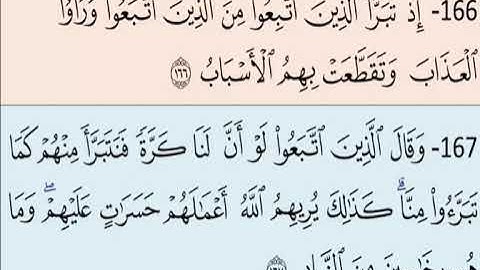 166- إِذْ تَبَرَّأَ الَّذِينَ اتُّبِعُوا مِنَ الَّذِينَ اتَّبَعُوا وَرَأَوُا
الْعَذَابَ وَتَقَطَّعَتْ بِهِمُ الْأَسْبَابُ ١٦٦
167- وَقَالَ الَّذِينَ اتَّبَعُوا لَوْ أَنَّ لَنَا كَرَّةً فَنَتَبَرَّأَ مِنْهُمْ كَمَا
تَبَرَّءُوا مِنَّا ۗ كَذَٰلِكَ يُرِيهِمُ اللَّهُ أَعْمَالَهُمْ حَسَرَاتٍ عَلَيْهِمْ ۖ وَمَا
هُم بِخَارِجِينَ مِنَ النَّارِ